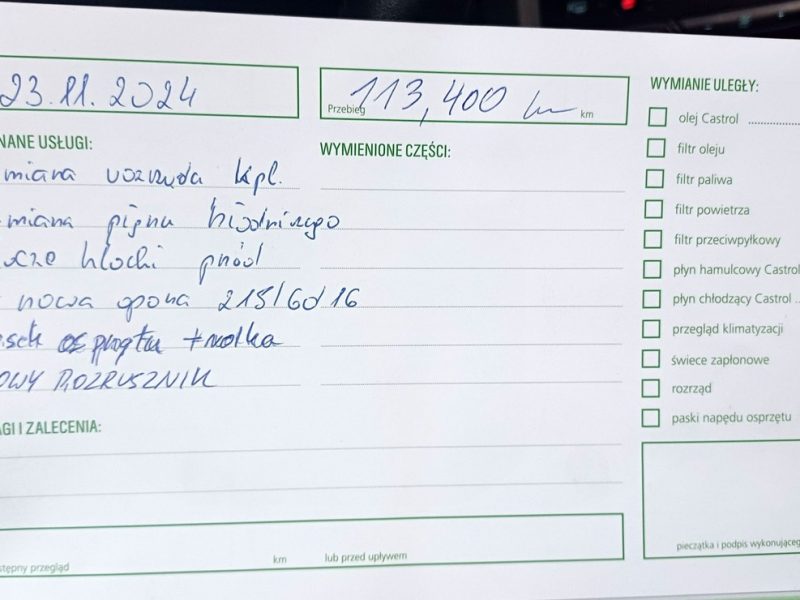 23.11.2024
Przebieg 113,400 km km
WYMIANIE ULEGŁY:
NANE USŁUGI:
WYMIENIONE CZĘŚCI:
miana rozrządu kpl.
miana płynu chłodniczego
klocki przód
nowa opona 215/60/16
sek osprzętu + rolka
OWY ROZRUSZNIK
olej Castrol
filtr oleju
filtr paliwa
filtr powietrza
filtr przeciwpyłkowy
płyn hamulcowy Castrol
płyn chłodzący Castrol
przegląd klimatyzacji
świece zapłonowe
rozrząd
paski napędu osprzętu
GI I ZALECENIA:
stępny przegląd
km
lub przed upływem
pieczątka i podpis wykonująceg